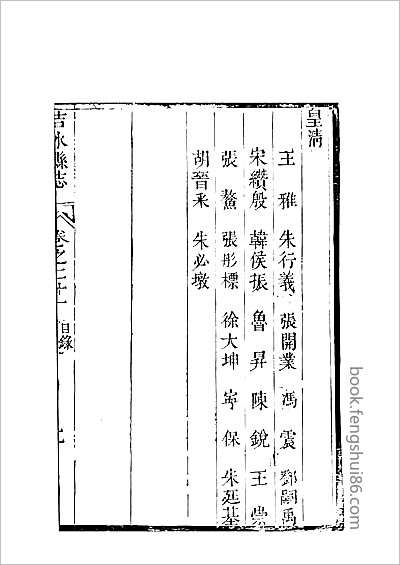 皇清
王雅 朱行義 張開業 馮震 鄧嗣禹
宋纘殷 韓侯振 魯昇 陳銳 王
張鰲 張彤標 徐大坤 寧保 朱廷基
胡晉釆 朱必墩
吉水縣志 卷之二十一 目錄
book.fengshui86.com